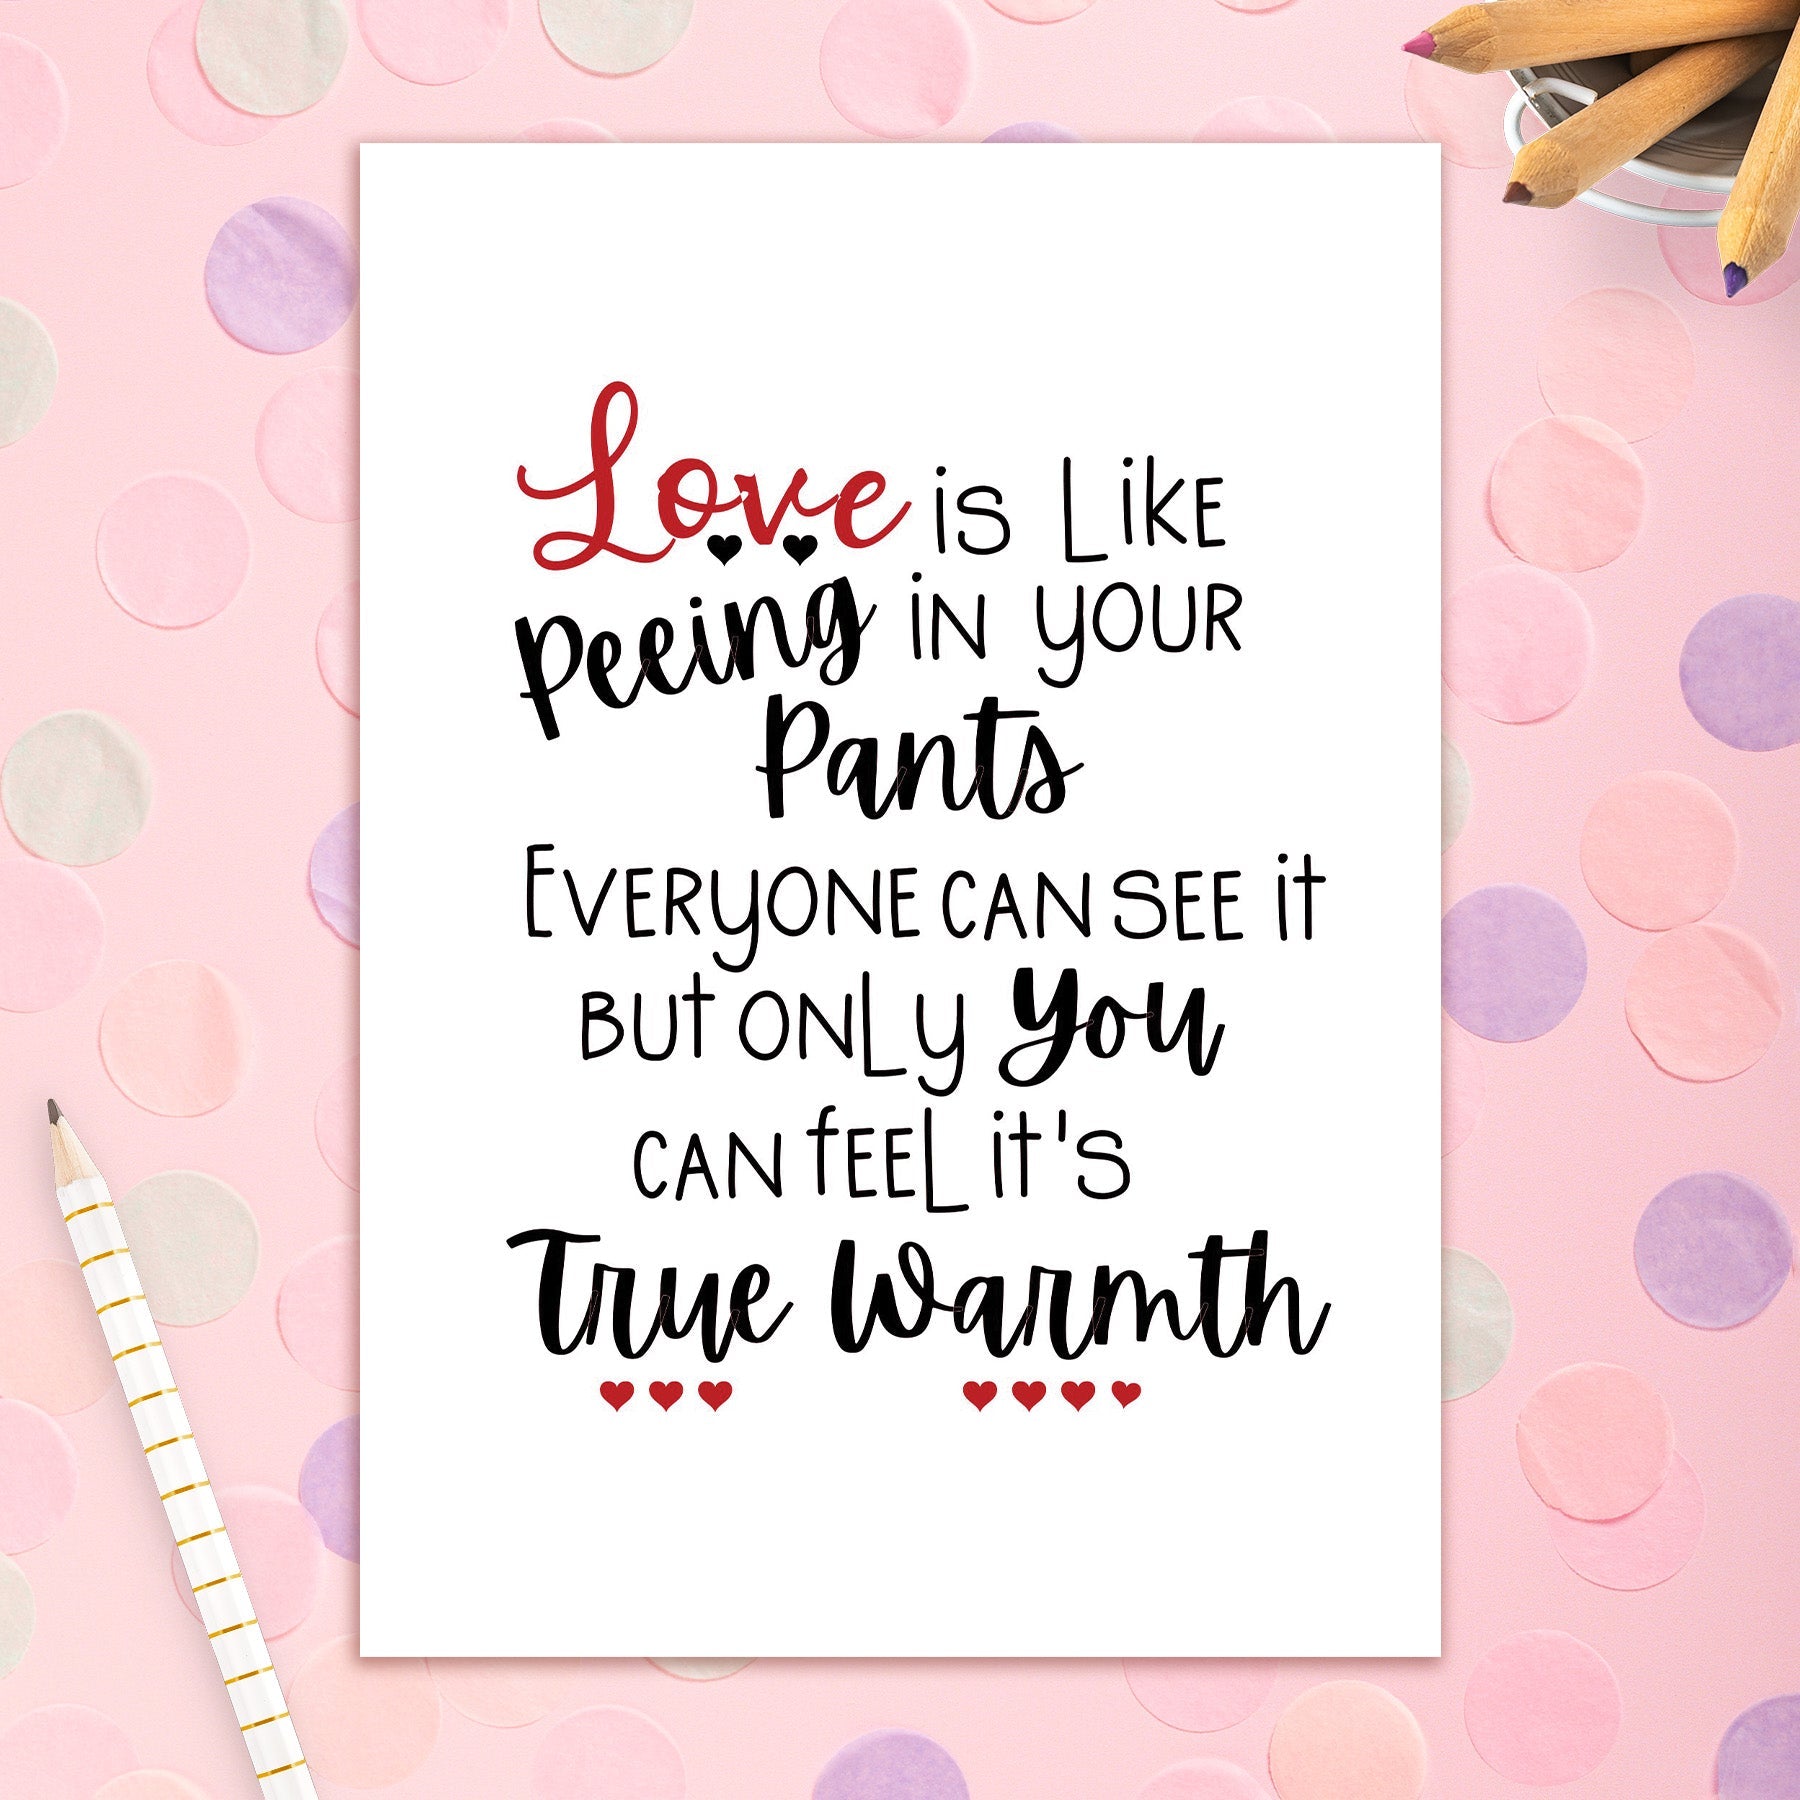 Love is Like
Peeing in your
Pants
Everyone can see it
but only You
can feel it's
True Warmth